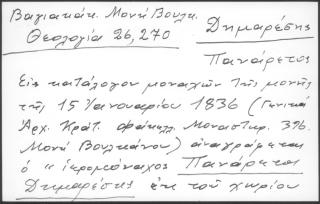 Βαγιακάκ. Μονή Βουλκ.
Θεολογία 26,270
Δημαρέσης
Πανάρετος
Εἰς κατάλογον μοναχῶν τῆς μονῆς
τῆς 15 Ἰανουαρίου 1836 (Γενικά
Ἀρχ. Κράτ. φάκελλ. Μοναστηρ. 396.
Μονή Βουλκάνου) ἀναγράφεται
ὁ "ἱερομόναχος Πανάρετος
Δημαρέσης ἐκ τοῦ χωρίου